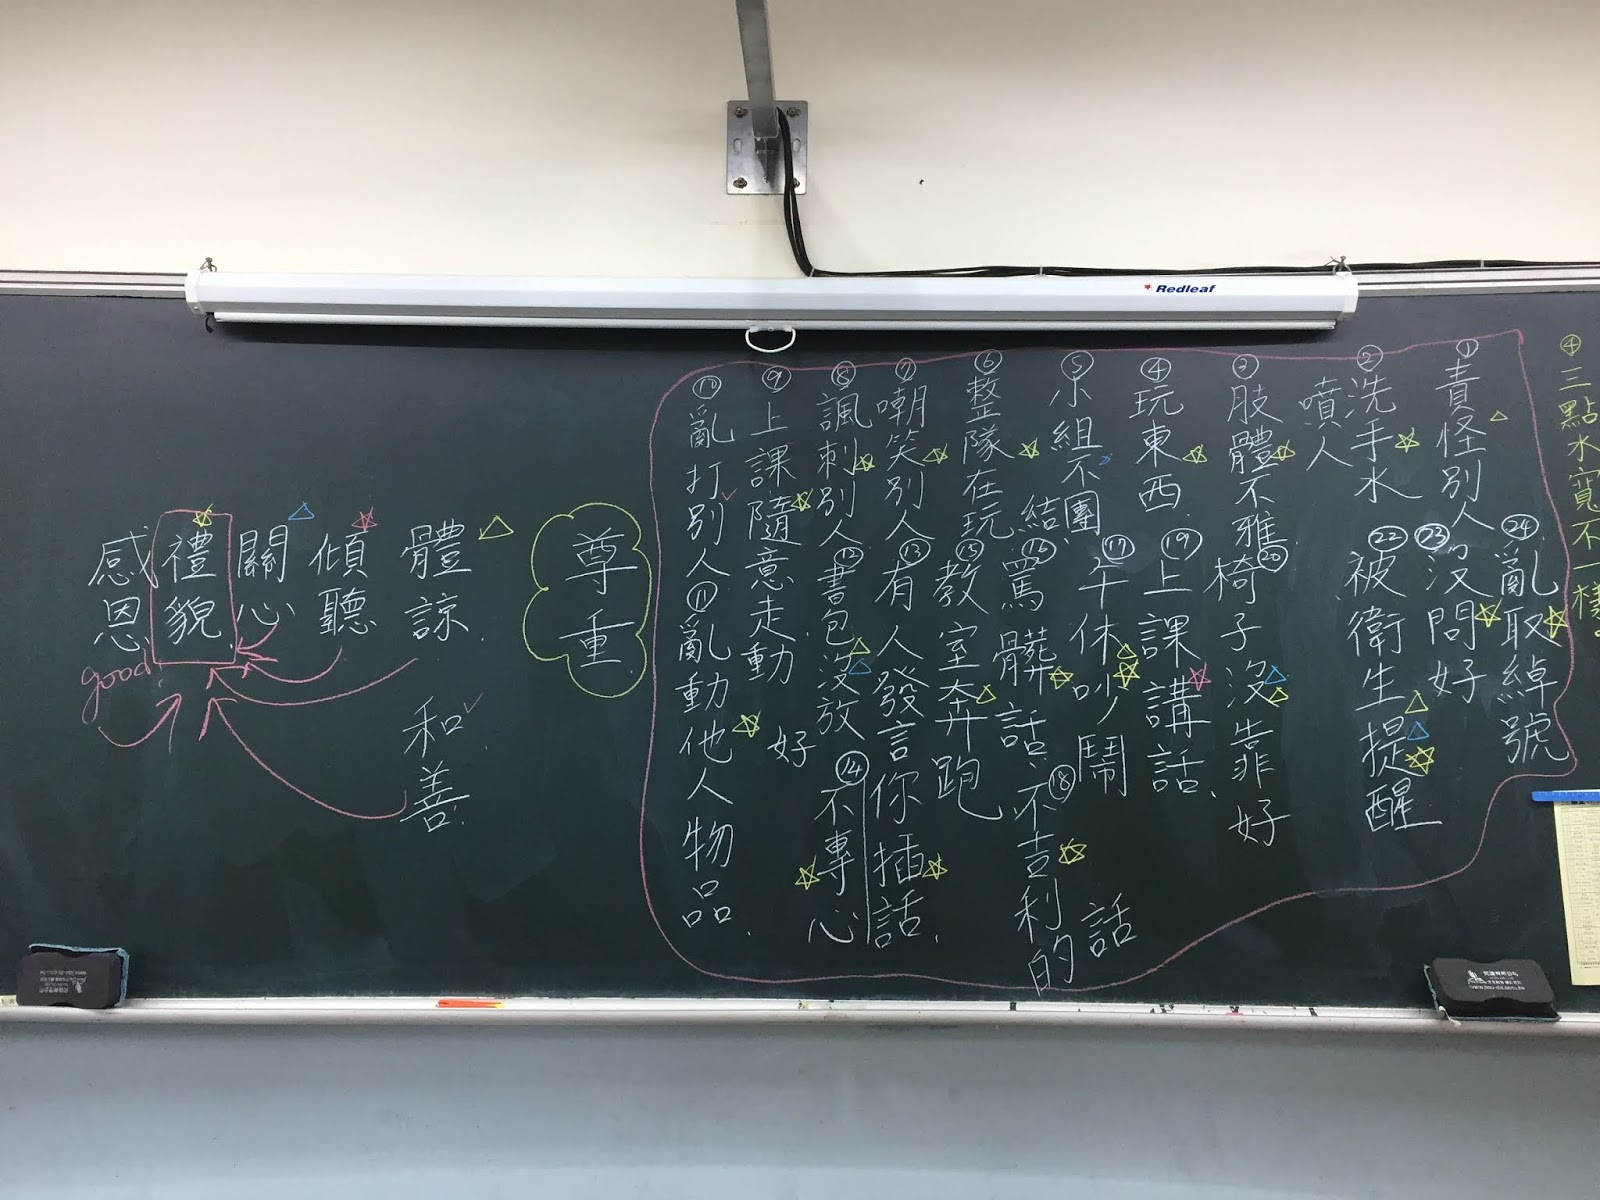 Redleaf
④三點水寬不一樣。
①責怪別人
②洗手水
噴人
③肢體不雅
④玩東西
⑤小組不團
結
⑥整隊在玩
⑦嘲笑別人
⑧諷刺別人
⑨上課隨意走動
⑩亂打別人
⑪亂動他人物品.
⑫書包沒放
好
⑬有人發言你插話.
⑭不專心
⑮教室奔跑
⑯罵髒話.
⑰午休吵鬧
⑱不吉利的
話
⑲上課講話.
⑳椅子沒靠好
㉒被衛生提醒
㉓沒問好
㉔亂取綽號
尊重
體諒.
和善.
傾聽
關心
禮貌
感恩
good